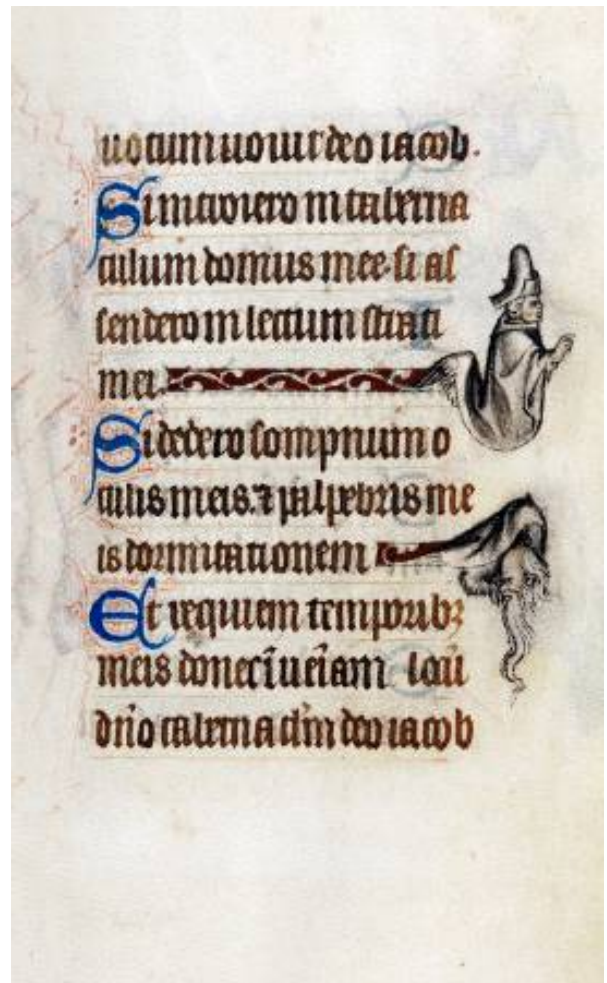 uotum uouit deo iacob.
Si introiero in taberna
culum domus mee. si as
sendero in lectum strati
mei.
Si dedero sompnum o
culis meis. ⁊ palpebris me
is dormitationem
Et requiem temporibꝫ
meis donec īueīam locū
dn̄o tabernaclm̄ deo iacob